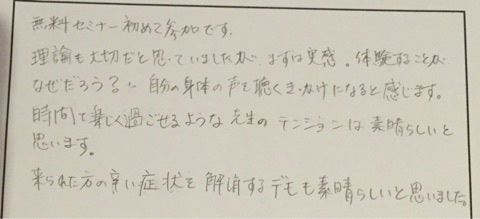 無料セミナー初めて参加です。
理論も大切だと思っていましたが、まずは実感。体験することが
なぜだろう?と自分の身体の声を聴くきっかけになると感じます。
時間も楽しく過ごせるような先生のテンションは素晴らしいと
思います。
来られた方の辛い症状を解消するデモも素晴らしいと思いました。